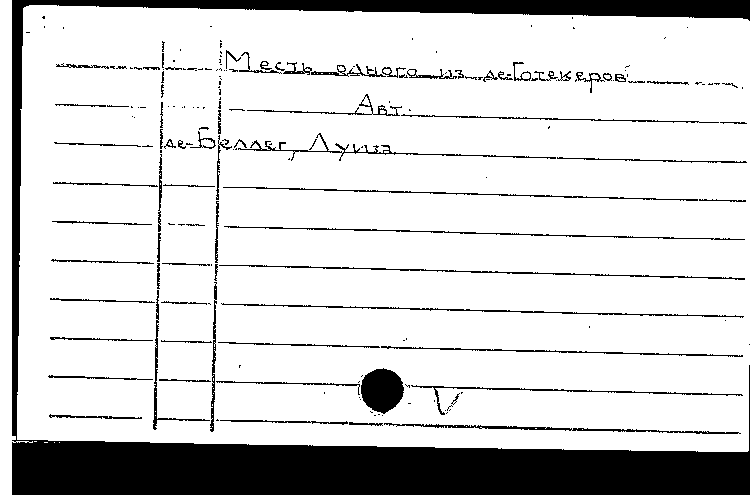 Месть одного из де-Готекеров
Авт.
де-Беллег, Луиза
V